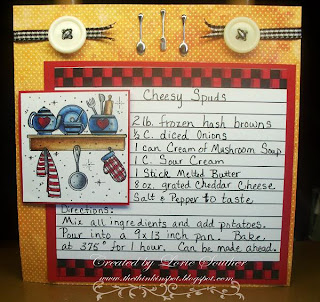 Cheesy Spuds
2 lb. frozen hash browns
½ C. diced Onions
1 can Cream of Mushroom Soup
1 C. Sour Cream
1 Stick Melted Butter
8 oz. grated Cheddar Cheese
Salt & Pepper to taste
Directions:
Mix all ingredients and add potatoes.
Pour into a 9x13 inch pan. Bake
at 375° for 1 hour. Can be made ahead.
Created by Lorie Souther
www.thethinkinspot.blogspot.com